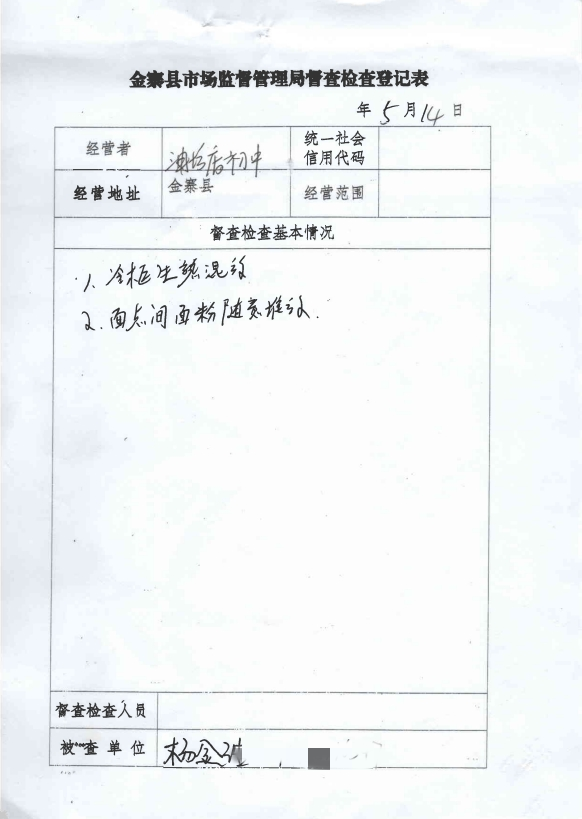 金寨县市场监督管理局督查检查登记表
年 5 月 14 日
经营者 店初中 统一社会信用代码
经营地址 金寨县 经营范围
督查检查基本情况
1. 冷柜生熟混放
2. 面点间面粉随意堆放.
督查检查人员
被 查单位 杨金